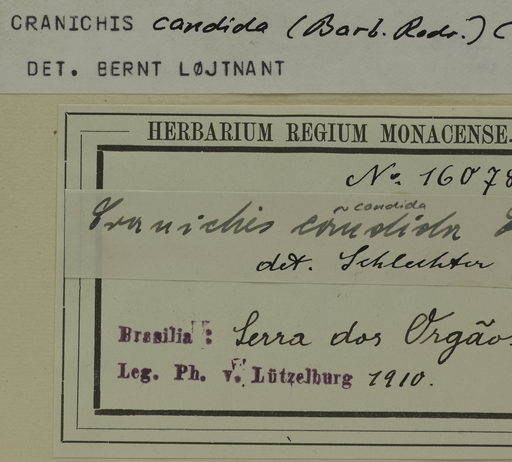 CRANICHIS candida (Barb. Rodr.) (
DET. BERNT LØJTNANT
HERBARIUM REGIUM MONACENSE.
No. 16078
candida
Cranichis candida
det. Schlechter
Brasilia: Serra dos Orgãos
Leg. Ph. v. Lützelburg 1910.